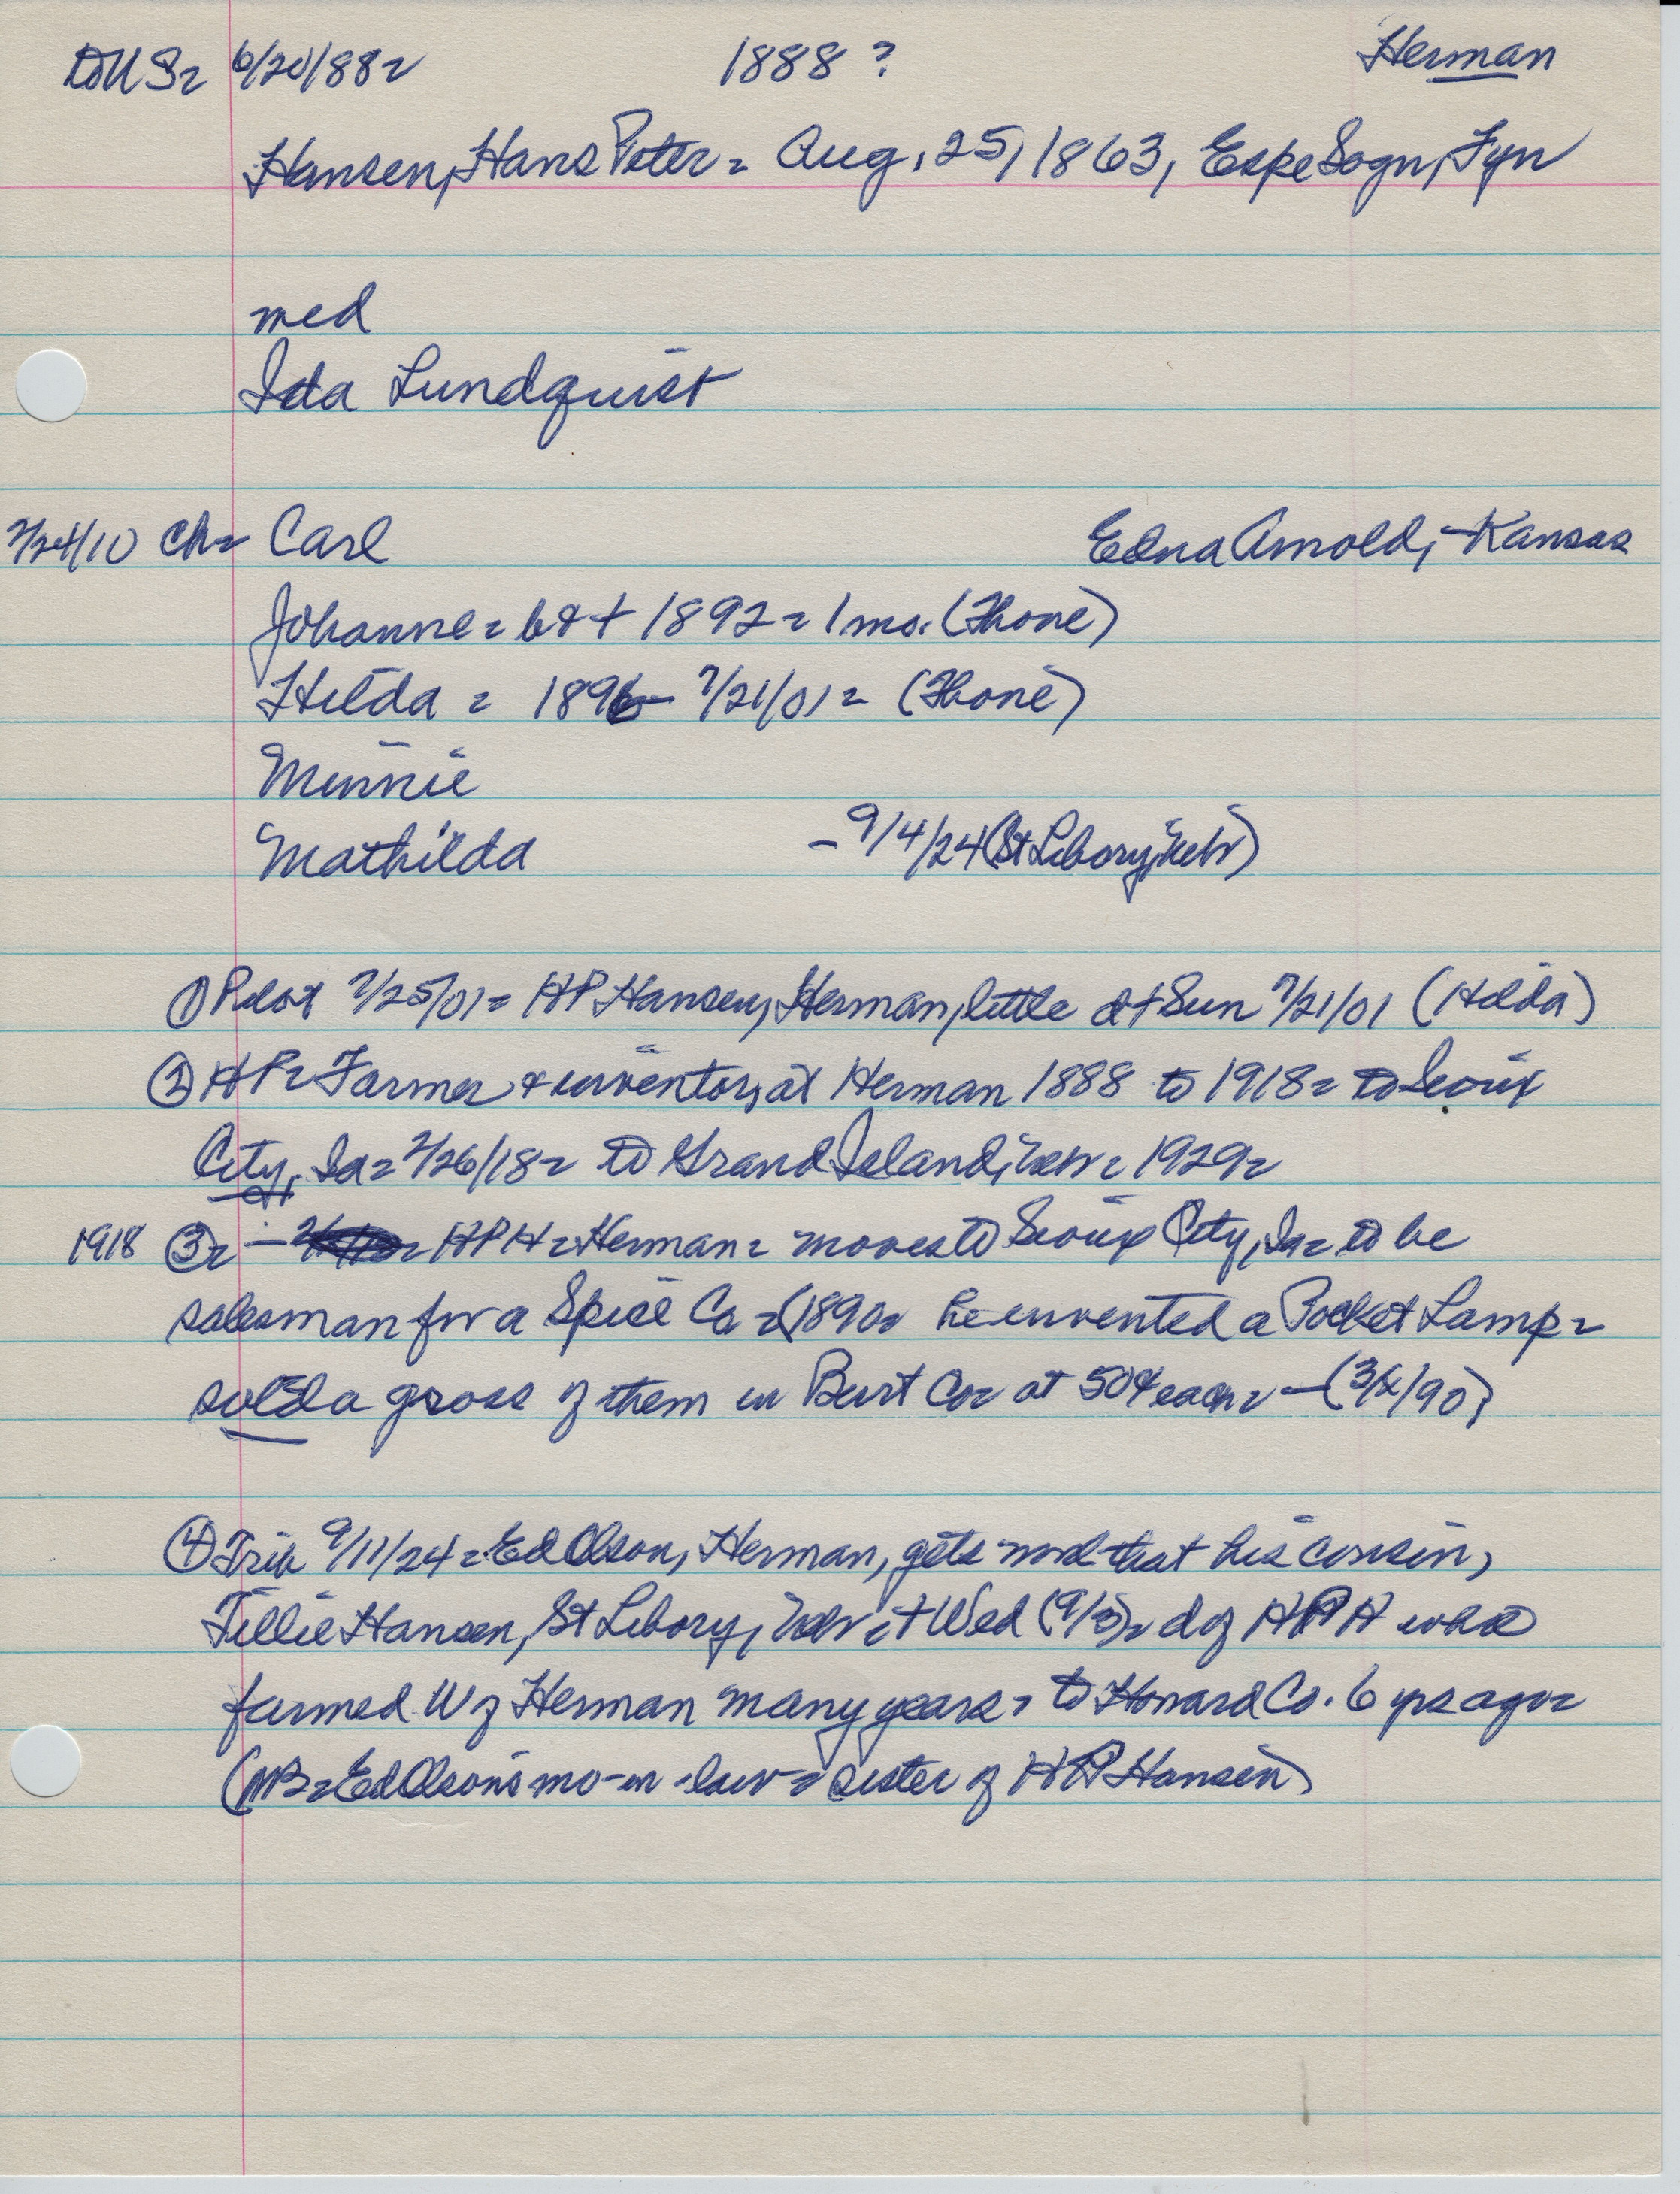 6/20/882 1888 ? Herman
Hansen, Hans Peter = Aug, 25, 1863, Espe Sogn, Fyn
med
Ida Lundquist
2/24/10 Ch= Carl Edna Arnold, - Kansas
Johanne = b & + 1892 = 1 mo. (Thone)
Hilda = 1896 - 7/21/01 = (Thone)
Minnie
Mathilda - 9/4/24 (St Libory, Nebr)
① Pilot 7/25/01 = HP Hansen, Herman, little d + Sun 7/21/01 (Hilda)
② HP = Farmer & inventor, at Herman 1888 to 1918 = to Sioux
City, Ia = 2/26/18 = to Grand Island, Nebr = 1929 =
1918 ③ = - HPH = Herman = moves to Sioux City, Ia = to be
salesman for a Spice Co = (1890 = he invented a Pocket Lamp =
sold a gross of them in Burt Co = at 50¢ each = - (3/ /90)
④ Trib 9/11/24 = Ed Olson, Herman, gets word that his cousin,
Tillie Hansen, St Libory, Nebr + Wed (9/3) = d of HPH who
farmed W of Herman many years = to Howard Co. 6 yrs ago =
(NB = Ed Olson's mo-in-law = sister of HP Hansen)